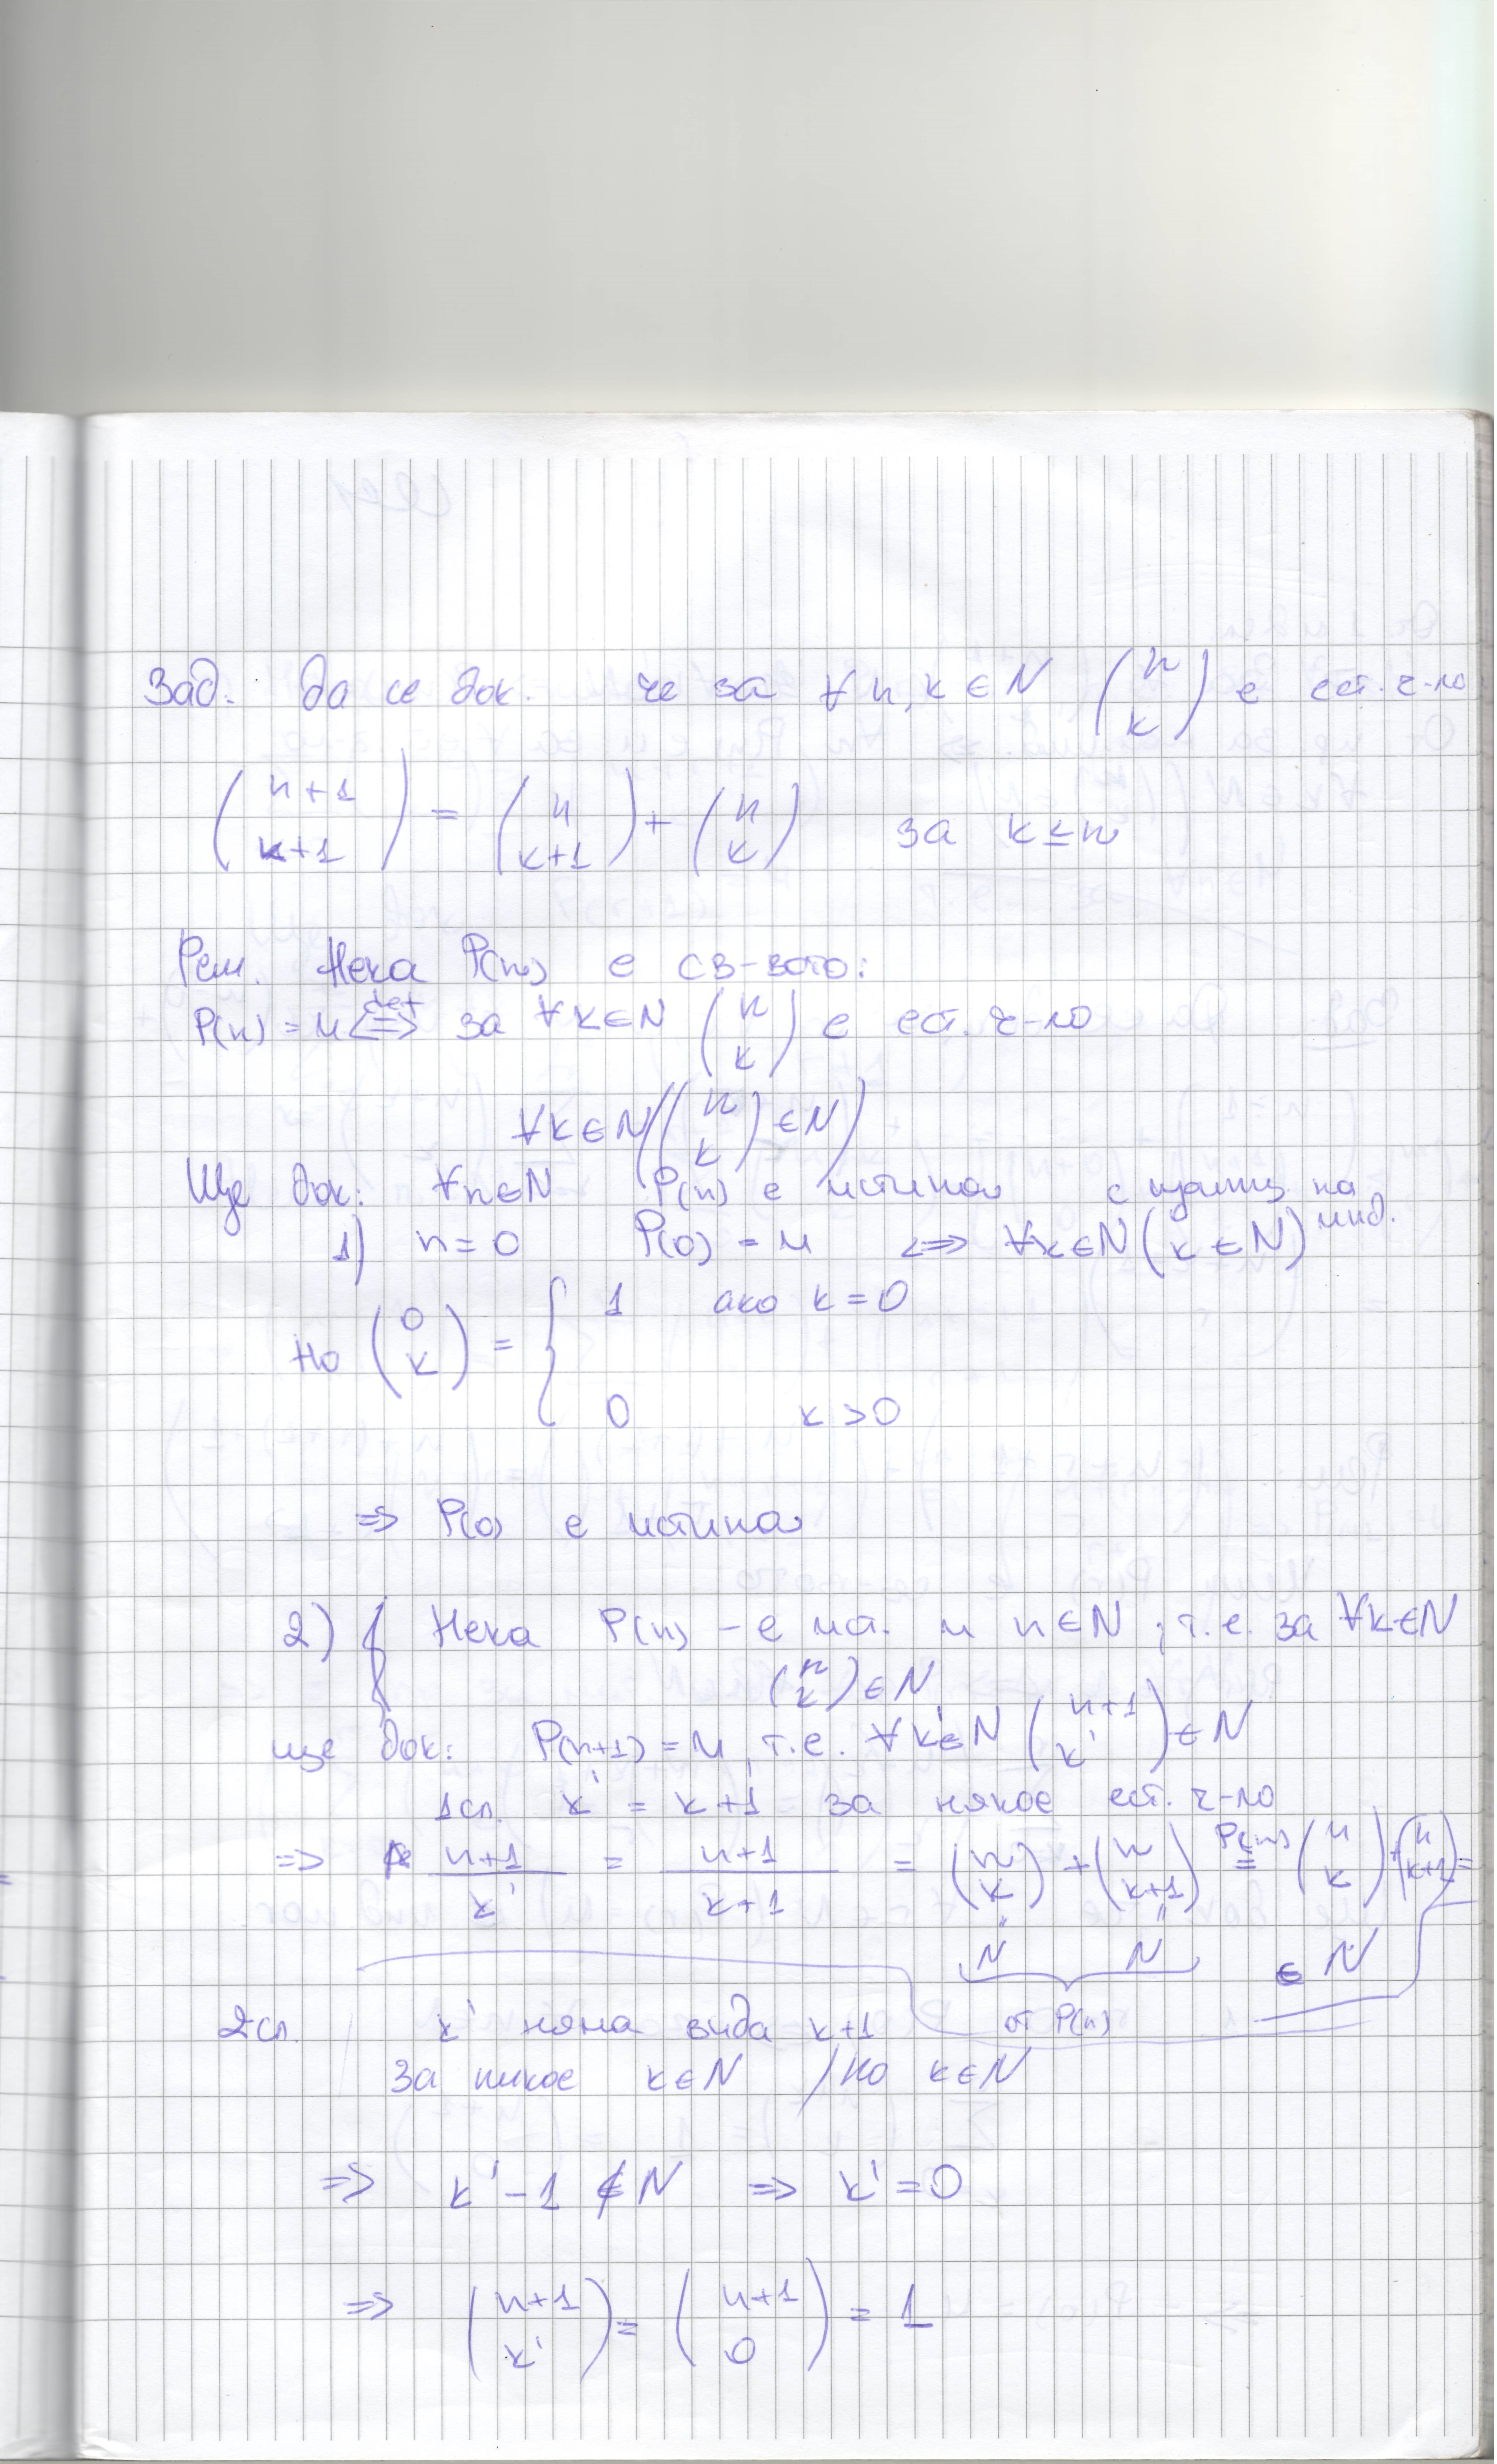 Зад. Да се док. че за ∀ n, k ∈ N (n k) е ест. ч-ло
(n+1 k+1) = (n k+1) + (n k) за k ≤ n
Реш. Нека P(n) е св-вото:
P(n) = и ⇔ def за ∀k∈N (n k) е ест. ч-ло
∀k∈N ((n k) ∈ N)
Ще док: ∀n∈N P(n) е истина с на инд.
1) n = 0 P(0) = и ⇔ ∀k∈N (k ∈ N)
Но (0 k) = { 1 ако k = 0
0 k > 0
⇒ P(0) е истина
2) Нека P(n) – е ист. и n∈N, т.е. за ∀k∈N
(n k) ∈ N
ще док: P(n+1) = и, т.е. ∀k'∈N (n+1 k') ∈ N
1сл. k' = k+1 за някое ест. ч-ло
⇒ n+1 / k' = n+1 / k+1 = (n k) + (n k+1) P(n) = (n k) + (n k+1) =
N N ∈ N
от P(n)
2сл. k' няма вида k+1
За никое k∈N / но k∈N
⇒ k' – 1 ∉ N ⇒ k' = 0
⇒ (n+1 k') = (n+1 0) = 1